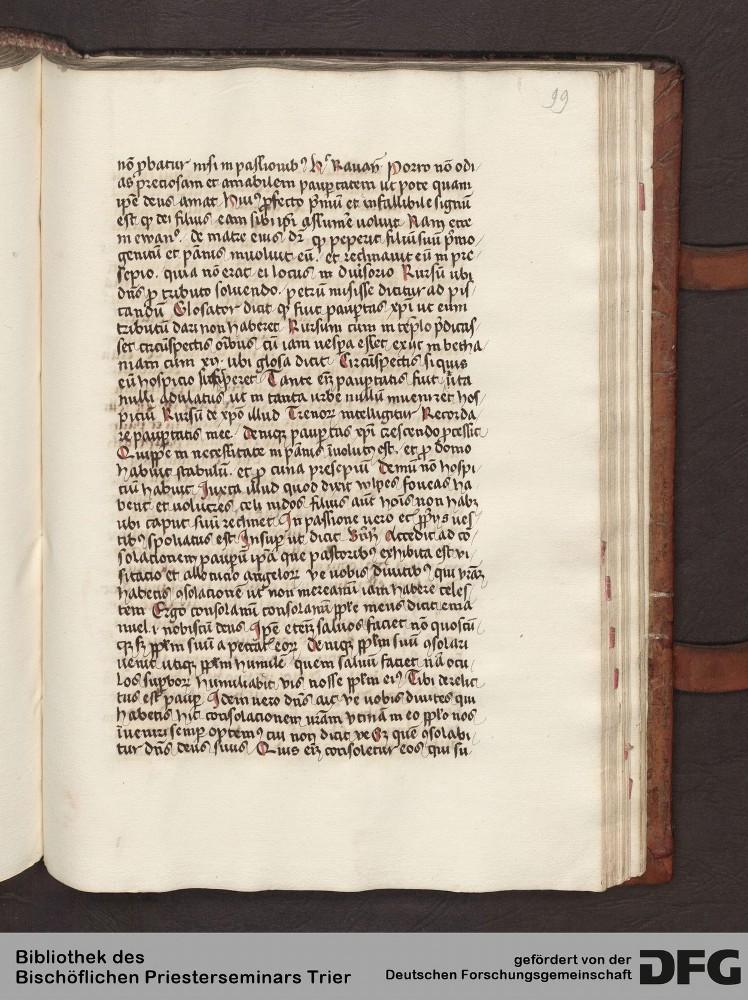 99
nō ꝓbatur nisi in passionibꝰ hᵉ Raban Porro nō odi
as preciosam et amabilem paupertatem ut pote quam
ipē deus amat huiꝰ ꝓfecto pͥmū et infallibile signū
est qꝫ dei filius eam sibi ipi assumē voluit Nam ecce
in ewanꝰ. de matre eius dr̄ qꝫ peperit filiū suū pͥmo
genitū et pānis inuoluit eū. et reclinauit eū in pre
sepio. quia nō erat ei locus in diuisorio Rursū ubi
dn̄s ꝓ tributo soluendo. petrū misisse dicitur ad pis
candū Glosator dicit qꝫ fuit pauptas xp̄i ut eum
tributū dari non haberet Rursum cum in templo pͥdicas
set circūspectis oībus cū iam vespa esset exiit in betha
niam cum xij. ubi glosa dicit Circūspectis si quis
eū hospicio susciperet Tante em̄ pauptatis fuit ita
nulli adulatus ut in tanta urbe nullū inueniret hos
piciū Rursū de xp̄o illud Trenor intelligitur Recorda
re pauptatis mee. deniqꝫ pauptas xp̄i crescendo ꝓcessit
Quippe in necessitate in pānis inuolutꝰ est. et ꝓ domo
habuit stabulū. et ꝓ cuna presepiū Demū nō hospi
ciū habuit Iuxta illud quod dicit vulpes foueas ha
bent et volucres celi nidos filius aut hoīs non habꝫ
ubi caput suū reclinet In passione vero et ꝓprijs ves
tibꝰ spoliatus est Insuꝑ ut dicit Accedit ad cō
solacionem paupū ipā que pastoribꝰ exhibita est vi
sitacio et allocucio angelorꝫ ve vobis diuitibꝰ qui vr̄am
habetis ꝯsolacionē ut non mereamī iam habere celes
tem Ergo consolamī consolamī pple meus dicit ema
nuel .i. nobiscū deus Ipē etem̄ saluos faciet nō quoscū
qꝫ sꝫ pplm suū a peccatꝭ eorꝫ Deniqꝫ pplm suū ꝯsolari
venit utiqꝫ pplm humilē quem saluū faciet nā ocu
los supborꝫ humiliabit vis nosse pplm eiꝰ Tibi derelic
tus est pauꝑ Idem vero dn̄s ait ve vobis diuites qui
habetis hic consolacionem vr̄am vtinā in eo pplo nos
īueniri semꝑ optemꝰ cui non dicit ve Sꝫ quē ꝯsolabi
tur dn̄s deus suus Quis em̄ consoletur eos qui su
Bibliothek des
Bischöflichen Priesterseminars Trier
gefördert von der
Deutschen Forschungsgemeinschaft
DFG